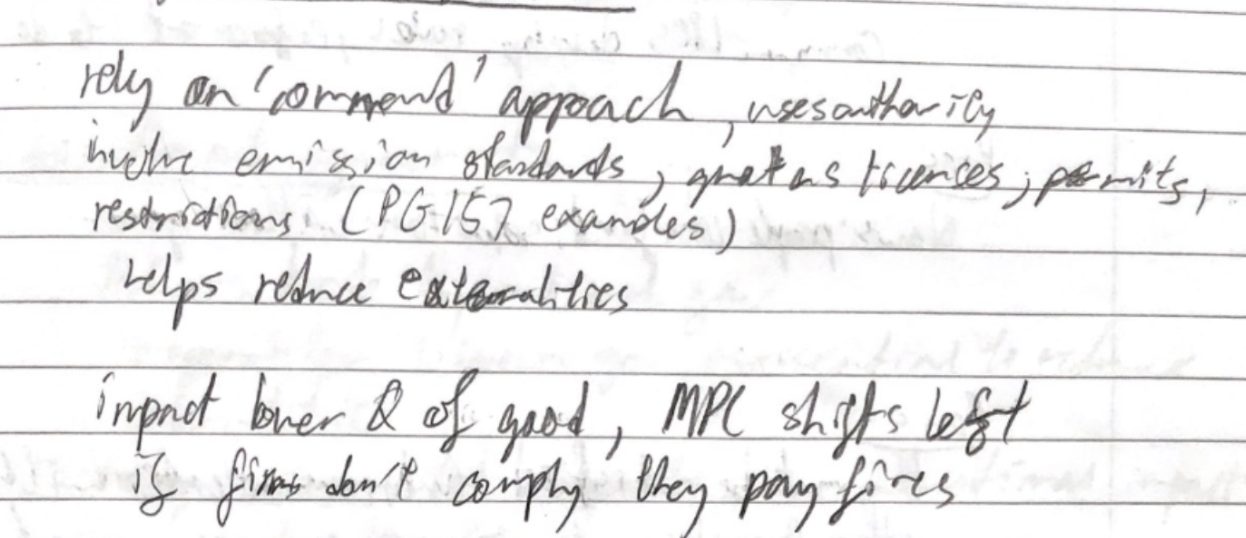 rely on 'command' approach, uses authority
involve emission standards, quotas licenses, permits,
restrictions (PG 157 examples)
helps reduce externalities
impact lower Q of good, MPC shifts left
if firms don't comply they pay fines